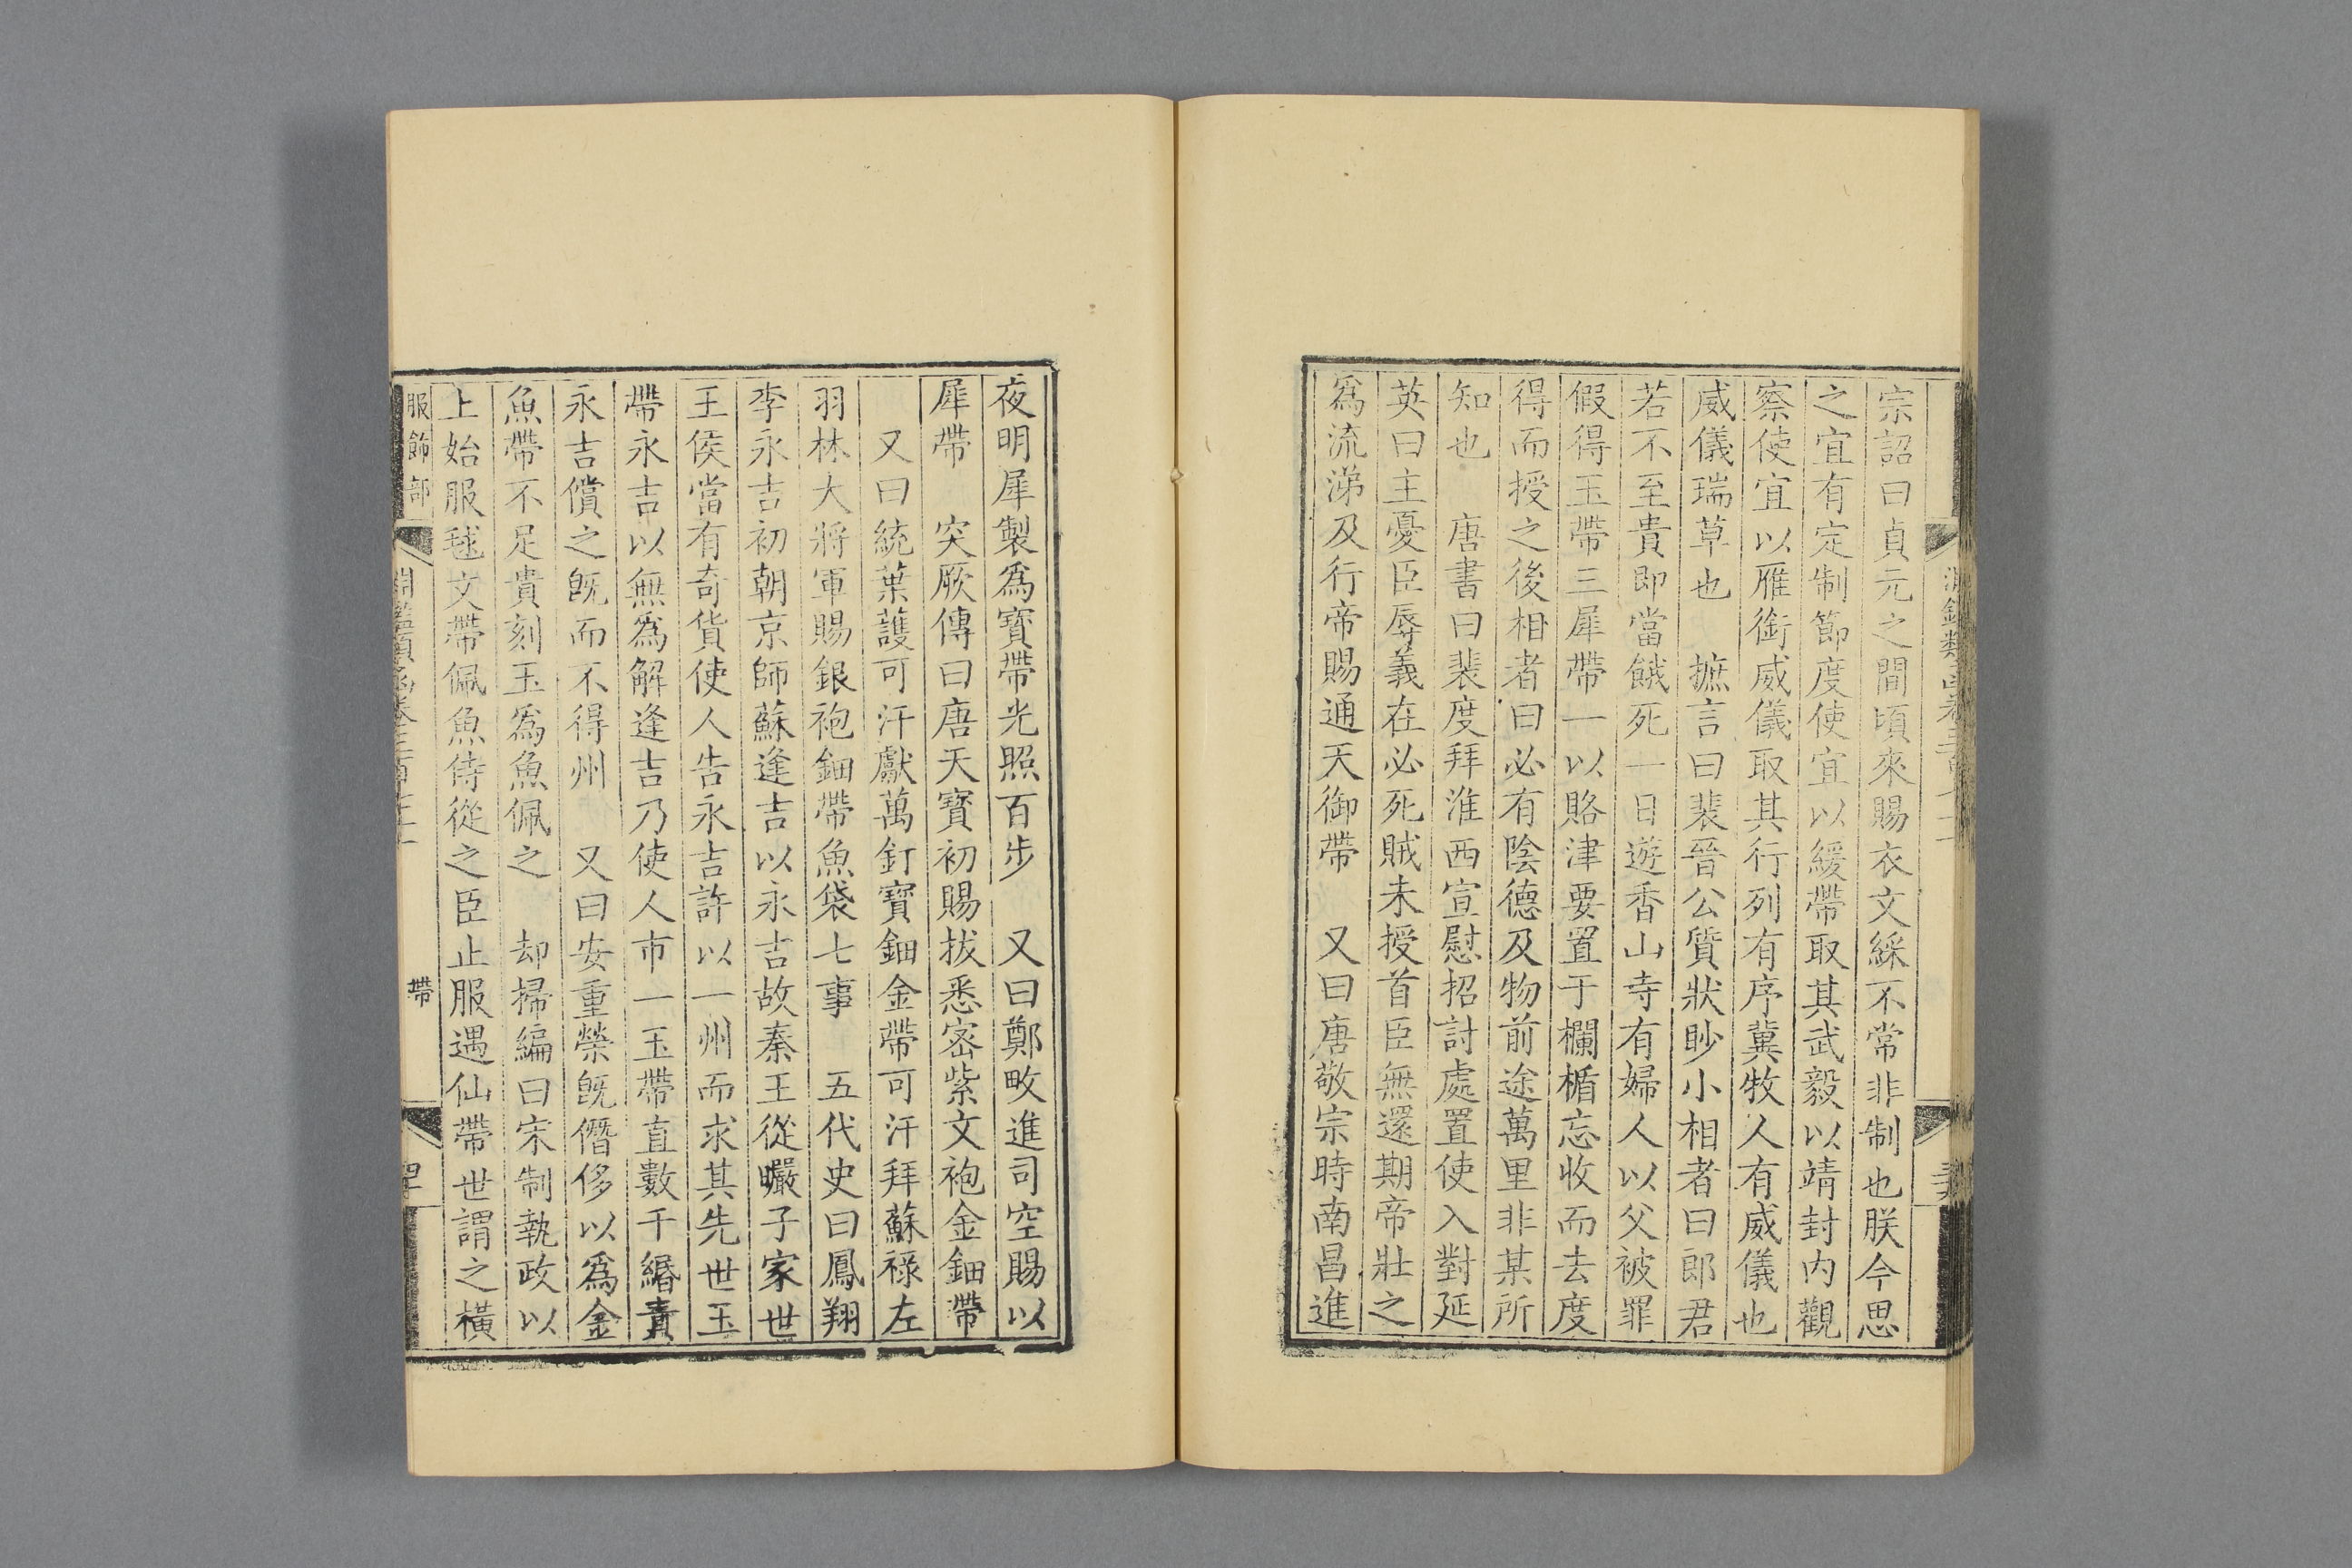 宗詔曰貞元之間頃來賜衣文綵不常非制也朕今思
之宜有定制節度使宜以緩帶取其武毅以靖封内觀
察使宜以雁銜威儀取其行列有序冀牧人有威儀也
威儀瑞草也　摭言曰裴晉公質狀眇小相者曰郎君
若不至貴即當餓死一日遊香山寺有婦人以父被罪
假得玉帶三犀帶一以賂津要置于欄楯忘收而去度
得而授之後相者曰必有陰德及物前途萬里非某所
知也　唐書曰裴度拜淮西宣慰招討處置使入對延
英曰主憂臣辱義在必死賊未授首臣無還期帝壯之
爲流涕及行帝賜通天御帶　又曰唐敬宗時南昌進
夜明犀製爲寶帶光照百步　又曰鄭畋進司空賜以
犀帶　突厥傳曰唐天寶初賜拔悉密紫文袍金鈿帶
又曰統葉護可汗獻萬釘寶鈿金帶可汗拜蘇祿左
羽林大將軍賜銀袍鈿帶魚袋七事　五代史曰鳳翔
李永吉初朝京師蘇逢吉以永吉故秦王從曮子家世
王侯當有奇貨使人告永吉許以一州而求其先世玉
帶永吉以無爲解逢吉乃使人市一玉帶直數千緡責
永吉償之旣而不得州　又曰安重榮旣僭侈以爲金
魚帶不足貴刻玉爲魚佩之　却掃編曰宋制執政以
上始服毬文帶佩魚侍從之臣止服遇仙帶世謂之橫
服飾部　帶